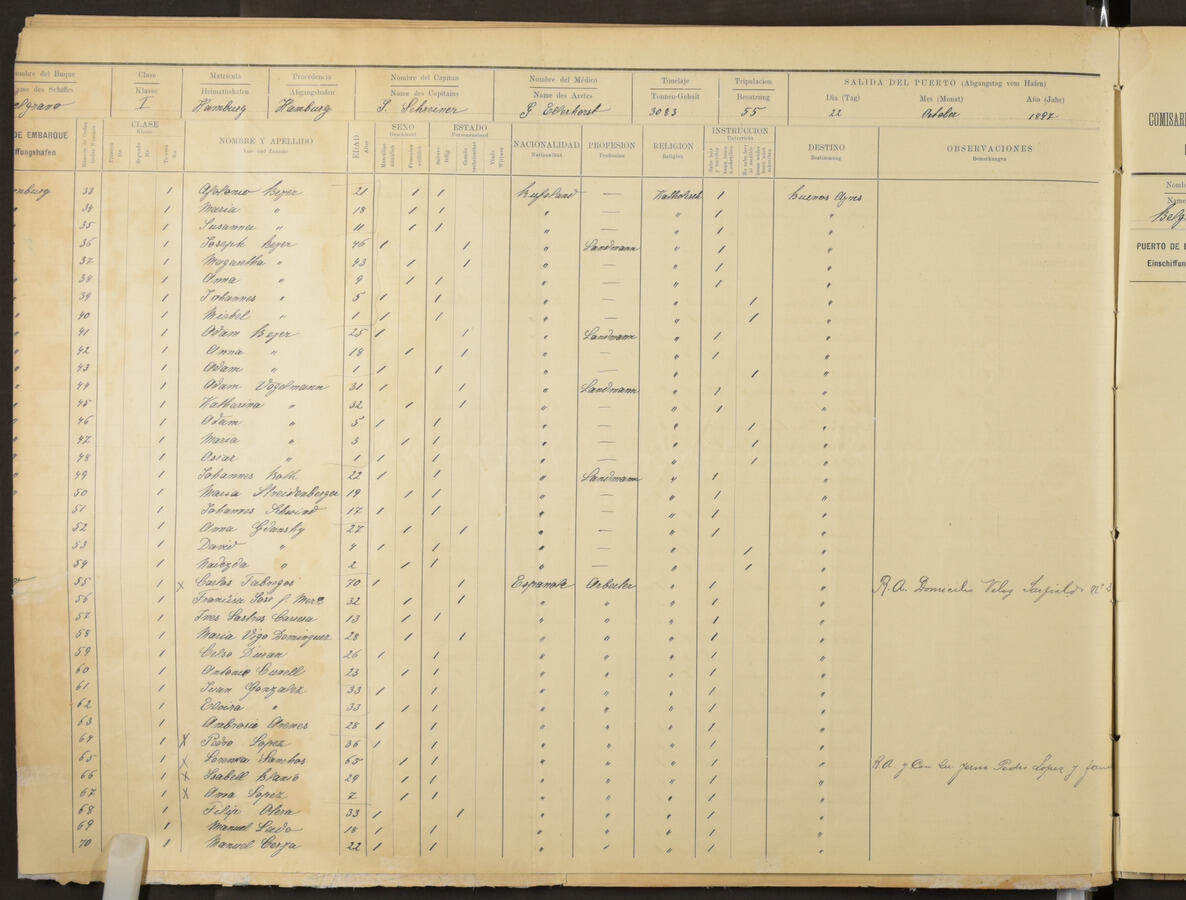 ombre del Buque Clase Matrícula Procedencia Nombre del Capitan Nombre del Médico Tonelaje Tripulacion SALIDA DEL PUERTO (Abgangstag vom Hafen)
me des Schiffes Klasse Heimathshafen Abgangshafen Name des Capitains Name des Arztes Tonnen-Gehalt Besatzung Dia (Tag) Mes (Monat) Año (Jahr)
elgrano I Hamburg Hamburg Schreiner 3083 55 22 October 1897
DE EMBARQUE CLASE NOMBRE Y APELLIDO EDAD SEXO ESTADO NACIONALIDAD PROFESION RELIGION INSTRUCCION DESTINO OBSERVACIONES
ffungshafen Klasse Vor- und Zuname Alter Geschlecht Personenstand Nationalität Profession Religion Unterricht Bestimmung Bemerkungen
mburg 33 1 Beyer 21 1 1 Russland — Katholisch 1 Buenos Ayres
" 34 1 Maria " 18 1 1 " — " 1 "
" 35 1 Susanna " 11 1 1 " — " 1 "
" 36 1 Joseph Beyer 46 1 1 " Landmann " 1 "
" 37 1 Margaretha " 43 1 1 " — " 1 "
" 38 1 Anna " 9 1 1 " — " 1 "
" 39 1 Johannes " 5 1 1 " — " 1 "
" 40 1 " 1 1 1 " — " 1 "
" 41 1 Adam Beyer 25 1 1 " Landmann " 1 "
" 42 1 Anna " 18 1 1 " — " 1 "
" 43 1 Adam " 1 1 1 " — " 1 "
" 44 1 Adam Vogelmann 31 1 1 " Landmann " 1 "
" 45 1 Katharina " 32 1 1 " — " 1 "
" 46 1 Adam " 5 1 1 " — " 1 "
" 47 1 Maria " 3 1 1 " — " 1 "
" 48 1 Oscar " 1 1 1 " — " 1 "
" 49 1 Johannes Roth 22 1 1 " Landmann " 1 "
" 50 1 Maria Streidenberger 19 1 1 " — " 1 "
" 51 1 Johannes 17 1 1 " — " 1 "
" 52 1 Anna Gdansky 27 1 1 " — " 1 "
" 53 1 David " 4 1 1 " — " 1 "
" 54 1 Nadezda " 2 1 1 " — " 1 "
55 1 X Carlos 70 1 1 Espanole Arbeiter " 1 " R.A. Domicilio Velez Sarfield
56 1 Francisca José 32 1 1 " " " 1 "
57 1 Ines Sastres 13 1 1 " " " 1 "
58 1 Maria Vigo Dominguez 28 1 1 " " " 1 "
59 1 Celso Duran 26 1 1 " " " 1 "
60 1 Antonio 23 1 1 " " " 1 "
61 1 Juan Gonzalez 33 1 1 " " " 1 "
62 1 Elvira " 33 1 1 " " " 1 "
63 1 Ambrosio 28 1 1 " " " 1 "
64 1 X Pedro Lopez 36 1 1 " " " 1 "
65 1 X Lorenza 65 1 1 " " " 1 " R.A. y Con su yerno Pedro Lopez y fam
66 1 X Isabell Blanco 29 1 1 " " " 1 "
67 1 X Anna Lopez 7 1 1 " " " 1 "
68 1 Filip 33 1 1 " " " 1 "
69 1 Manuel 18 1 1 " " " 1 "
70 1 Manuel 22 1 1 " " " 1 "
COMISAR
Nomb
Name
Belg
PUERTO DE
Einschiffun